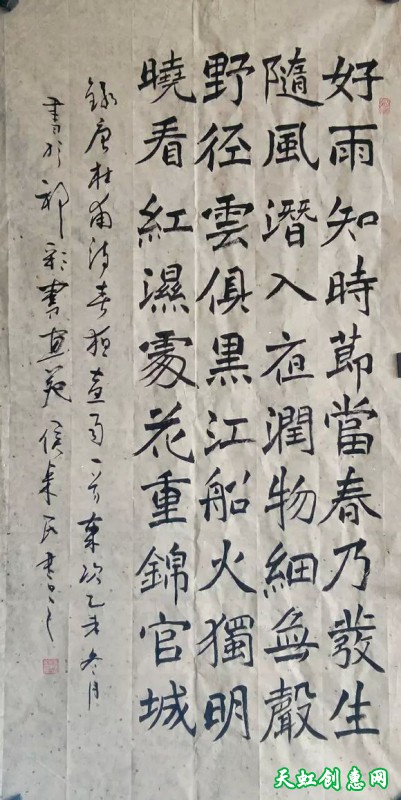 好雨知時節當春乃發生
隨風潛入夜潤物細無聲
野径雲俱黑江船火獨明
曉看紅濕處花重錦官城
錄唐杜甫诗春夜喜雨一首歲次乙未冬月
書於彩書画苑侯民書之
天虹创惠网